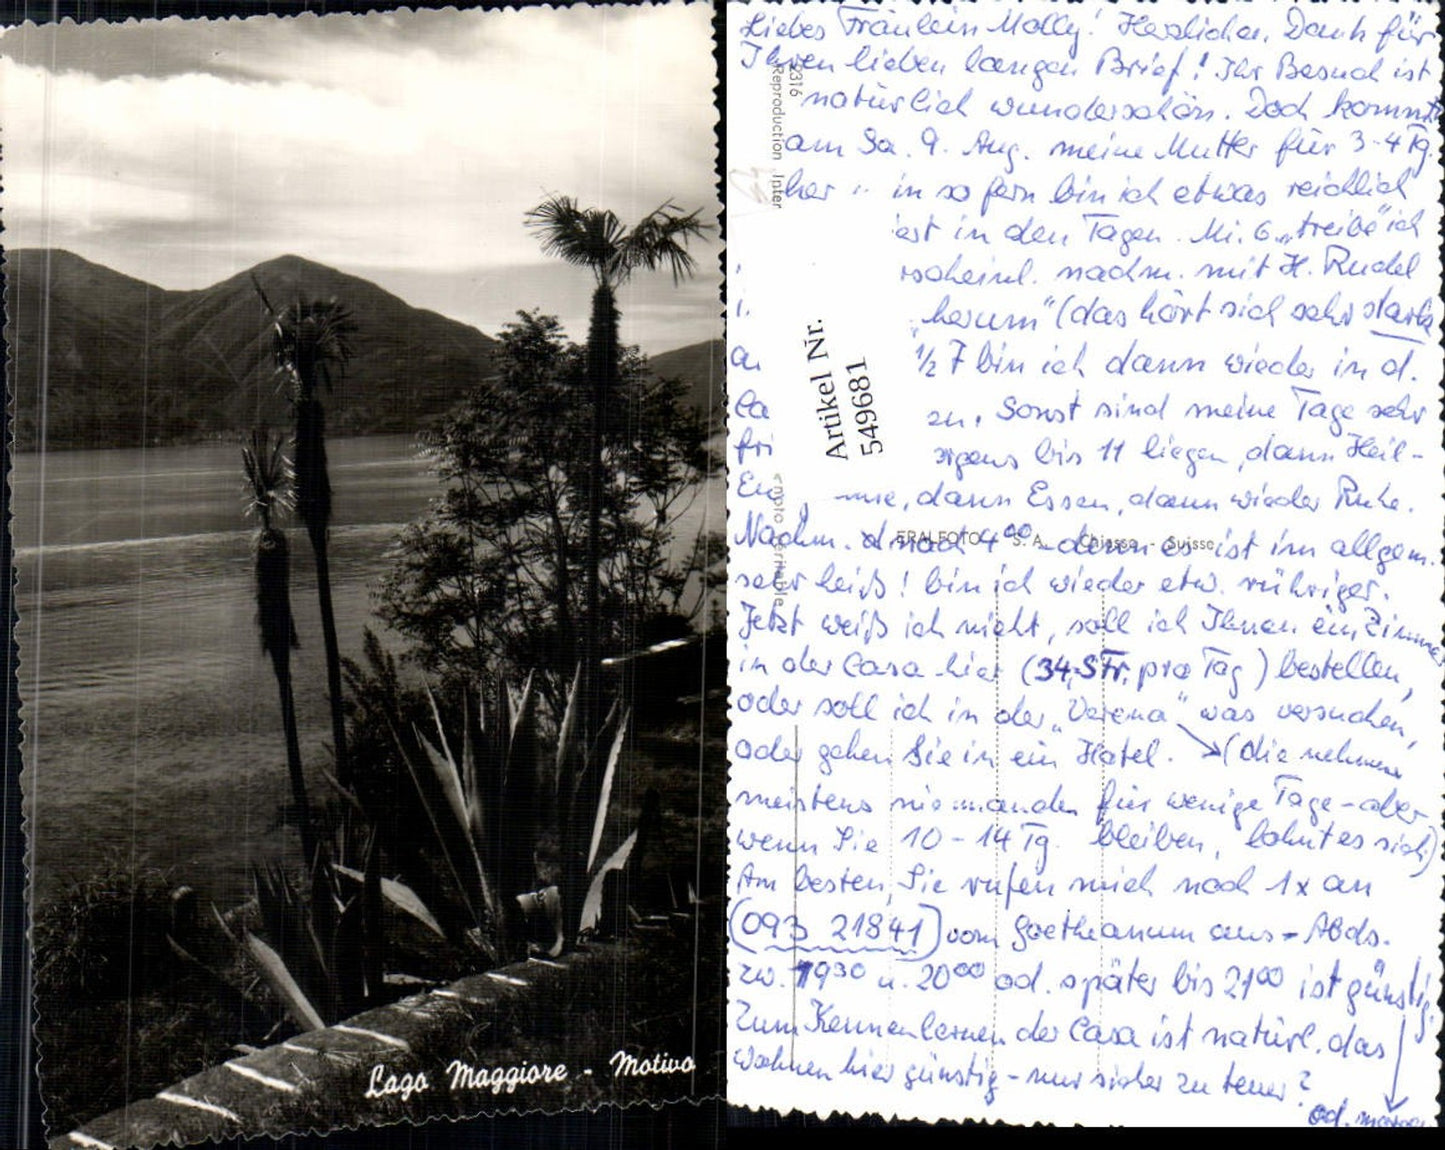 Lago Maggiore - Motivo
Liebes Fräulein Molly! Herzlichen Dank für
Ihren lieben langen Brief! Ihr Besuch ist
natürlich wunderschön. Doch kommt
am Sa. 9. Aug. meine Mutter für 3-4 Tg.
her in so fern bin ich etwas reichlich
in den Tagen. Mi. 6. „treibe" ich
nachm. mit H. Rudel
herum" (das hört sich sehr stark
1/2 7 bin ich dann wieder in d.
zu. Sonst sind meine Tage sehr
bis 11 liegen, dann Heil-
dann Essen, dann wieder Ruhe.
Nachm. nach 4 00 - denn es ist im allgem.
sehr heiß! bin ich wieder etw. rühriger.
Jetzt weiß ich nicht, soll ich Ihnen ein Zimmer
in der Casa hier (34,- SFr. pro Tag) bestellen,
oder soll ich in der „Verena" was versuchen,
oder gehen Sie in ein Hotel. (die nehmen
meistens niemanden für wenige Tage - aber
wenn Sie 10 - 14 Tg. bleiben, lohnt es sich)
Am besten, Sie rufen mich noch 1x an
(093 21841) vom Goetheanum aus - Abds.
zw. 19 30 u. 20 00 od. später bis 21 00 ist günstig.
Zum Kennenlernen der Casa ist natürl. das
Wohnen hier günstig - nur sicher zu teuer?
od.
Artikel Nr.
549681
2316
Reproduction Inter
véritable
S. A. Chiasso - Suisse